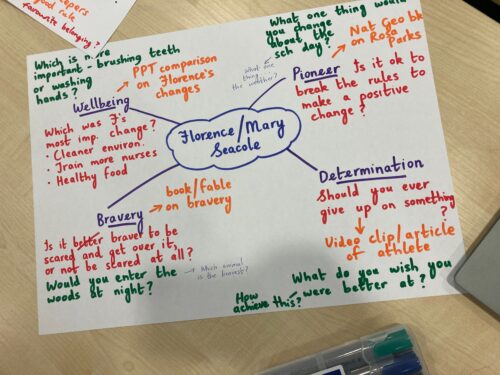 epers
good rule
favourite belonging?
Which is more
important - brushing teeth
or washing
hands?
PPT comparison
on Florence's
changes
Wellbeing
Which was F's
most imp. change?
• Cleaner environ.
• Train more nurses
• Healthy food
What one thing would
you change
about the
sch day?
What one
thing
the weather?
Nat Geo bk
on Rosa
Parks
Pioneer
Is it ok to
break the rules to
make a positive
change?
Florence/Mary
Seacole
Bravery
book/fable
on bravery
Is it better bravel to be
scared and get over it,
or not be scared at all?
Would you enter the
woods at night?
Which animal
is the bravest?
Determination
Should you ever
give up on something
?
Video clip/article
of athlete
What do you wish you
were better at?
How
achieve this?